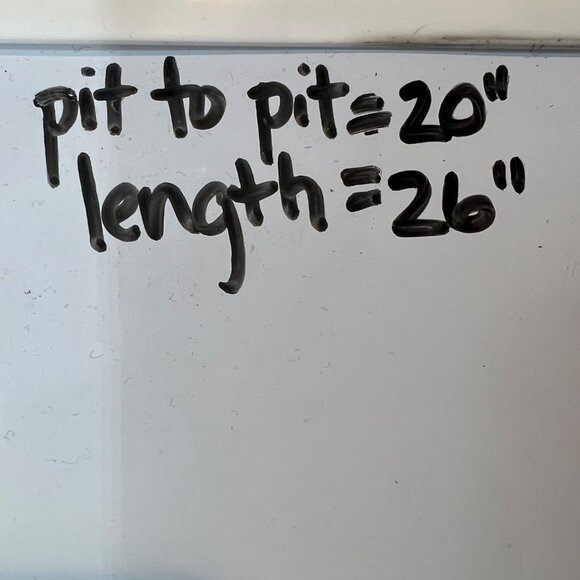 pit to pit = 20"
length = 26"